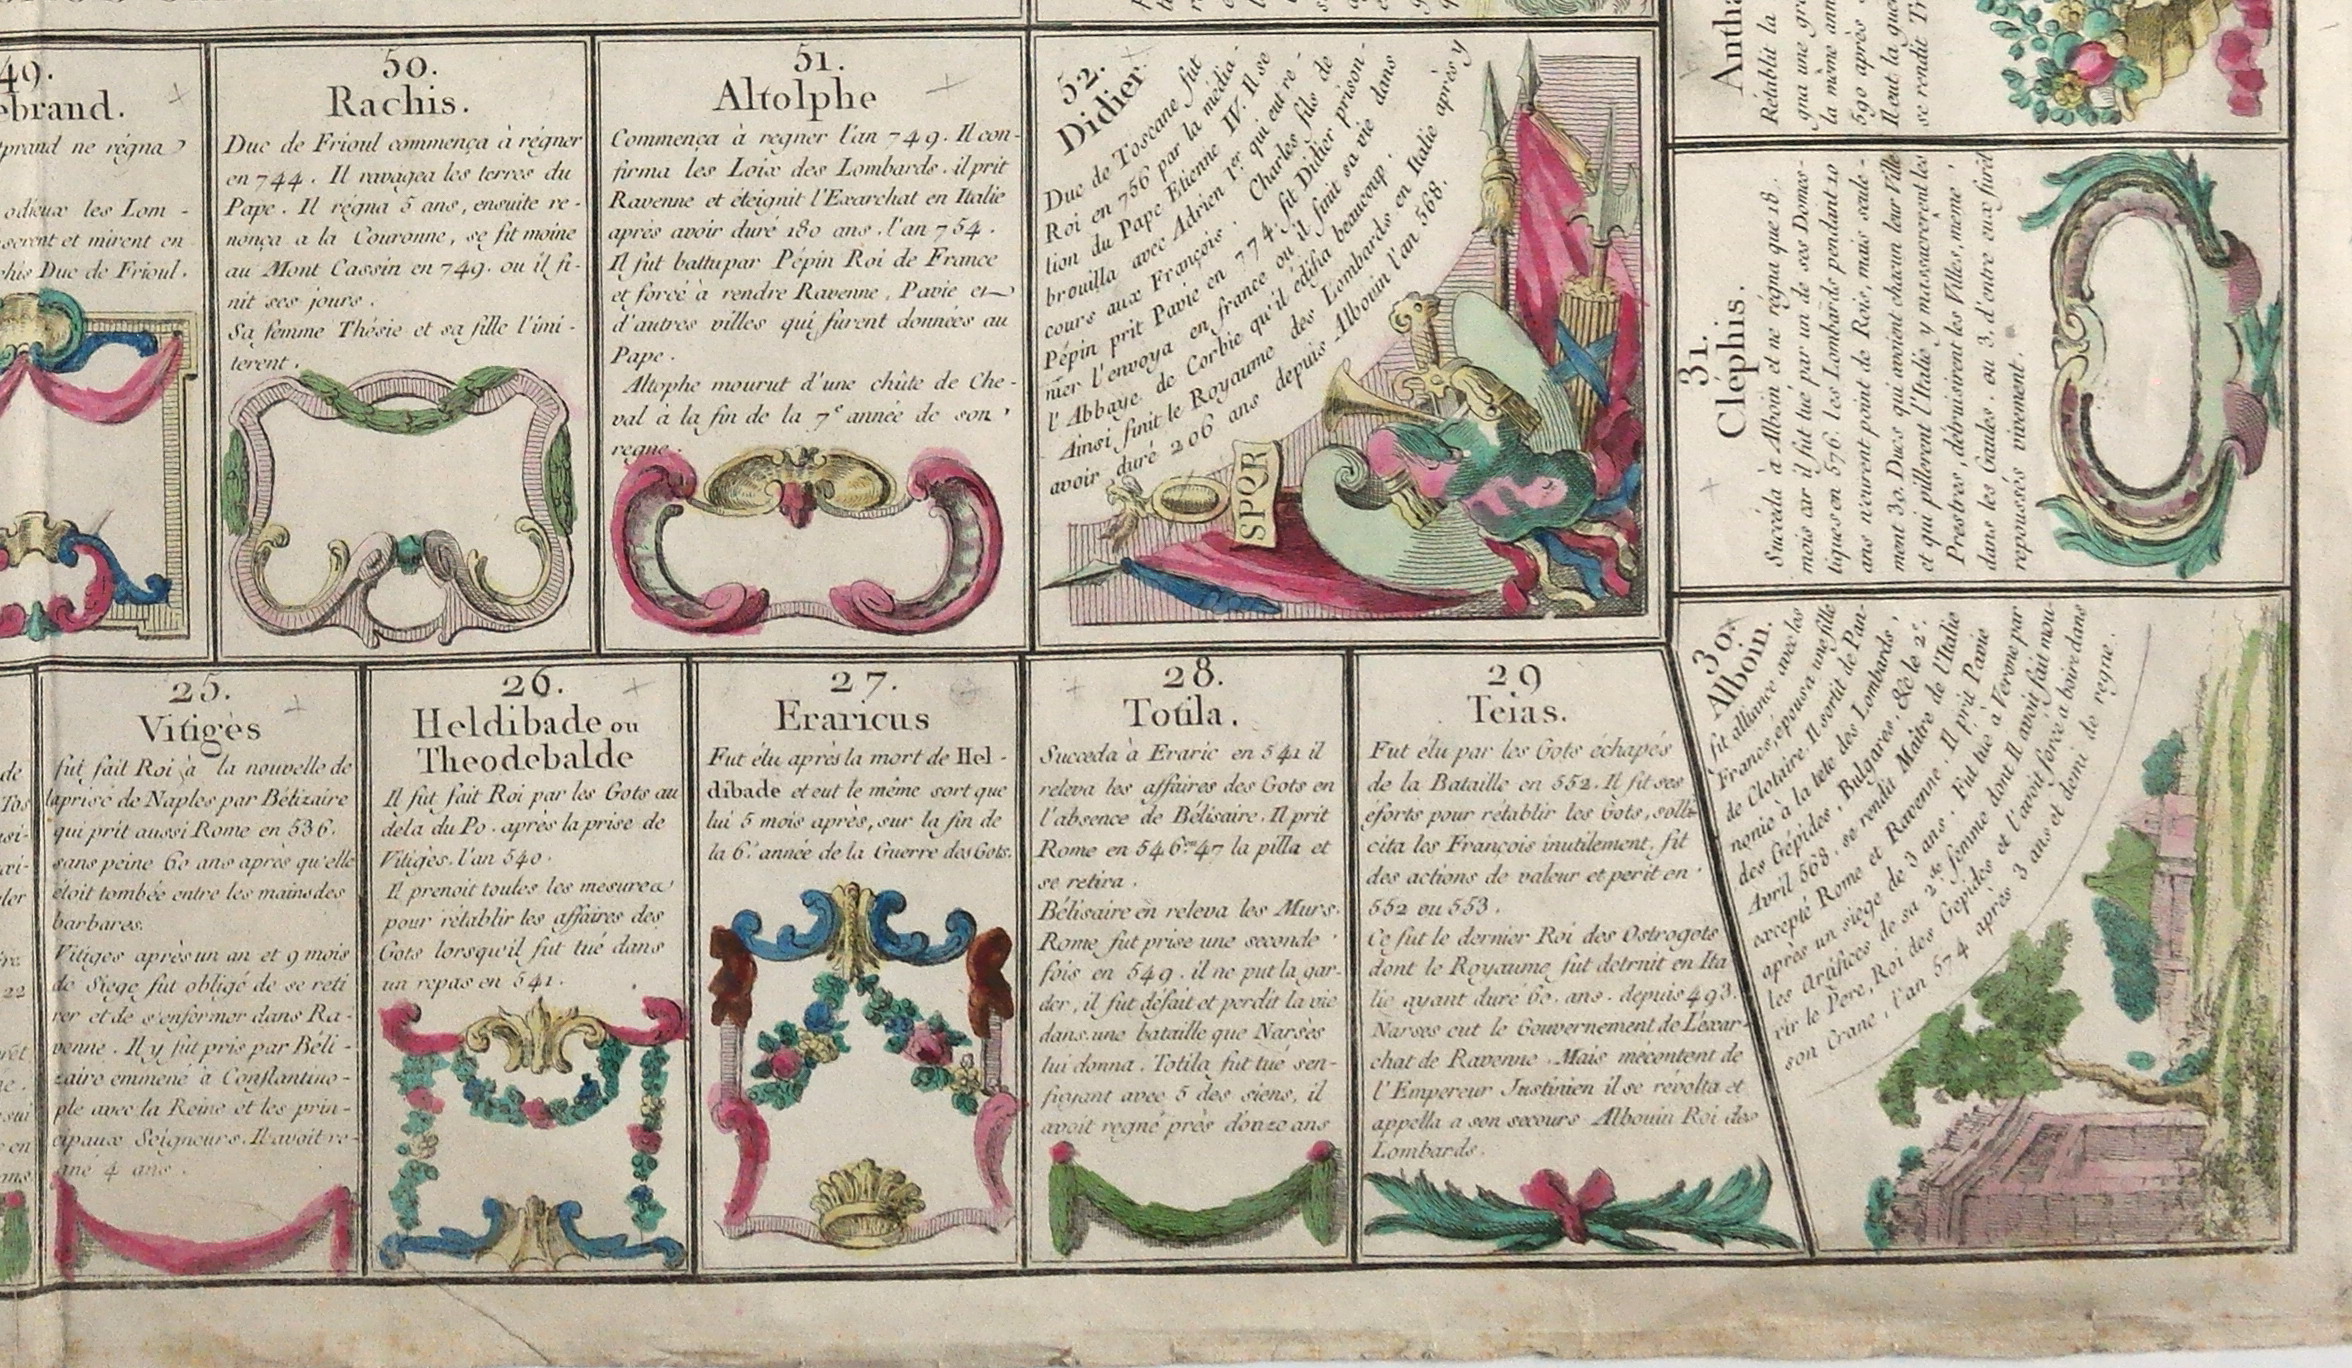 49.
ebrand.
prand ne régna
odieux les Lom -
serent et mirent en
chis Duc de Frioul.
50.
Rachis.
Duc de Frioul commença à régner
en 744. Il ravagea les terres du
Pape. Il régna 5 ans, ensuite re-
nonça a la Couronne, se fit moine
au Mont Cassin en 749. ou il fi-
nit ses jours.
Sa femme Thésie et sa fille l'imi -
terent.
51.
Altolphe
Commença à regner l'an 749. Il con-
firma les Loix des Lombards. il prit
Ravenne et éteignit l'Exarchat en Italie
après avoir duré 180 ans. l'an 754.
Il fut battu par Pépin Roi de France
et forcé à rendre Ravenne, Pavie et
d'autres villes qui furent données au
Pape.
Altophe mourut d'une chûte de Che-
val à la fin de la 7e année de son
regne.
52.
Didier.
Duc de Toscane fut
Roi en 756 par la média-
tion du Pape Etienne IV. Il se
brouilla avec Adrien 1er. qui eut re-
cours aux François. Charles fils de
Pépin prit Pavie en 774. fit Didier prison-
nier l'envoya en france ou il finit sa vie dans
l'Abbaye de Corbie qu'il édifia beaucoup.
Ainsi finit le Royaume des Lombards en Italie après y
avoir duré 206 ans depuis Albouin l'an 568.
SPQR
Antha
Rétablit la
gna une gra
la même ann
590 après
Il eut la que
se rendit Tr
31.
Cléphis.
Succéda à Alboin et ne régna que 18
mois car il fut tué par un de ses Domes-
tiques en 576. les Lombards pendant 10
ans n'eurent point de Rois, mais seule-
ment 30. Ducs qui avoient chacun leur Ville
et qui pillerent l'Italie y massacrerent les
Prestres, détruisirent les Villes, meme
dans les Gaules. ou 3. d'entre eux furent
repoussés vivement.
25.
Vitigès
fut fait Roi à la nouvelle de
la prise de Naples par Bélizaire
qui prit aussi Rome en 536.
sans peine 60 ans après qu'elle
étoit tombée entre les mains des
barbares.
Vitiges après un an et 9 mois
de Siege fut obligé de se reti
rer et de s'enfermer dans Ra-
venne. Il y fut pris par Béli -
zaire emmené à Constantino-
ple avec la Reine et les prin-
cipaux Seigneurs. Il avoit re-
gné 4 ans.
26.
Heldibade ou
Theodebalde
Il fut fait Roi par les Gots au
dela du Po. après la prise de
Vitigès. l'an 540.
Il prenoit toutes les mesures
pour rétablir les affaires des
Gots lorsqu'il fut tué dans
un repas en 541.
27.
Eraricus
Fut élu après la mort de Hel -
dibade et eut le même sort que
lui 5 mois après, sur la fin de
la 6e. année de la Guerre des Gots.
28.
Totila.
Succeda à Eraric en 541 il
releva les affaires des Gots en
l'absence de Bélisaire. Il prit
Rome en 546 ou 47 la pilla et
se retira.
Bélisaire en releva les Murs.
Rome fut prise une seconde
fois en 549. il ne put la gar-
der, il fut défait et perdit la vie
dans une bataille que Narsès
lui donna. Totila fut tué sen-
fuyant avec 5 des siens, il
avoit regné près d'onze ans
29
Teias.
Fut élu par les Gots échapés
de la Bataille en 552. Il fit ses
éforts pour rétablir les Gots, solli-
cita les François inutilement, fit
des actions de valeur et perit en
552 ou 553.
Ce fut le dernier Roi des Ostrogots
dont le Royaume fut detruit en Ita
lie ayant duré 60. ans. depuis 493.
Narses eut le Gouvernement de l'éxar-
chat de Ravenne. Mais mécontent de
l'Empereur Justinien il se révolta et
appella a son secours Albouin Roi des
Lombards.
30.
Alboin.
fit alliance avec les
Francs, épousa une fille
de Clotaire. Il sortit de Pan-
nonie à la tete des Lombards,
des Gépides, Bulgares, &c le 2e.
Avril 568. se rendit Maître de l'Italie
excepté Rome et Ravenne. Il prit Pavie
après un siege de 3 ans. Fut tué à Verone par
les Artifices de sa 2de femme dont Il avoit fait mou-
rir le Pere, Roi des Gepides et l'avoit forcé a boire dans
son Crane, l'an 574 après 3 ans et demi de regne.